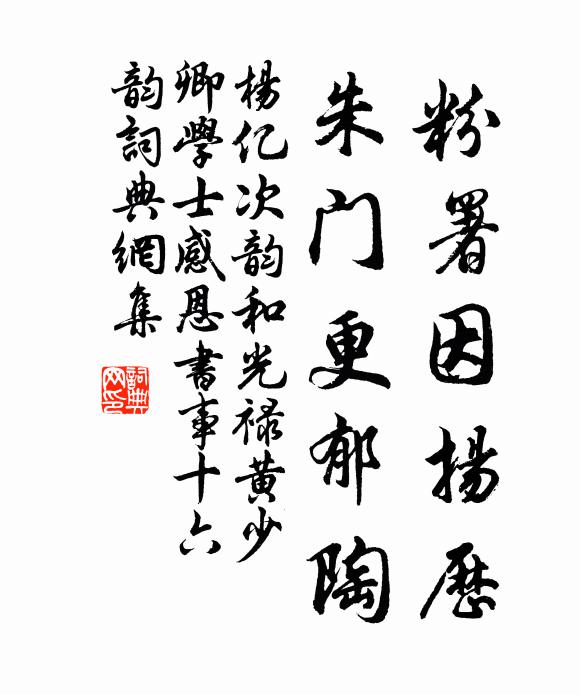 粉署因揚歷
朱门更郁陶
楊亿次韵和光禄黄少
卿學士感恩書事十六
韵詞典網集
詞典
网印